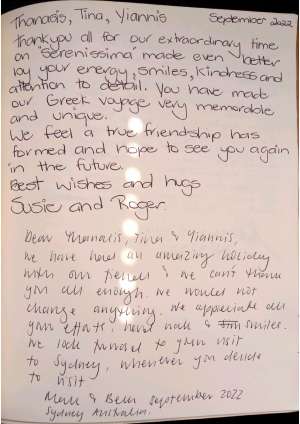 Thanasis, Tina, Yiannis September 2022
thankyou all for our extraordinary time
on "Serenissima" made even better
by your energy, smiles, kindness and
attention to detail. You have made
our Greek voyage very memorable
and unique.
We feel a true friendship has
formed and hope to see you again
in the future.
Best wishes and hugs
Susie and Roger.
Dear Thanasis, Tina & Yiannis,
We have had an amazing holiday
with our friends & we can't thank
you all enough. We would not
change anything. We appreciate all
your efforts, hard work & smiles.
We look forward to your visit
to Sydney, whenever you decide
to visit
Mark & September 2022
Sydney Australia.